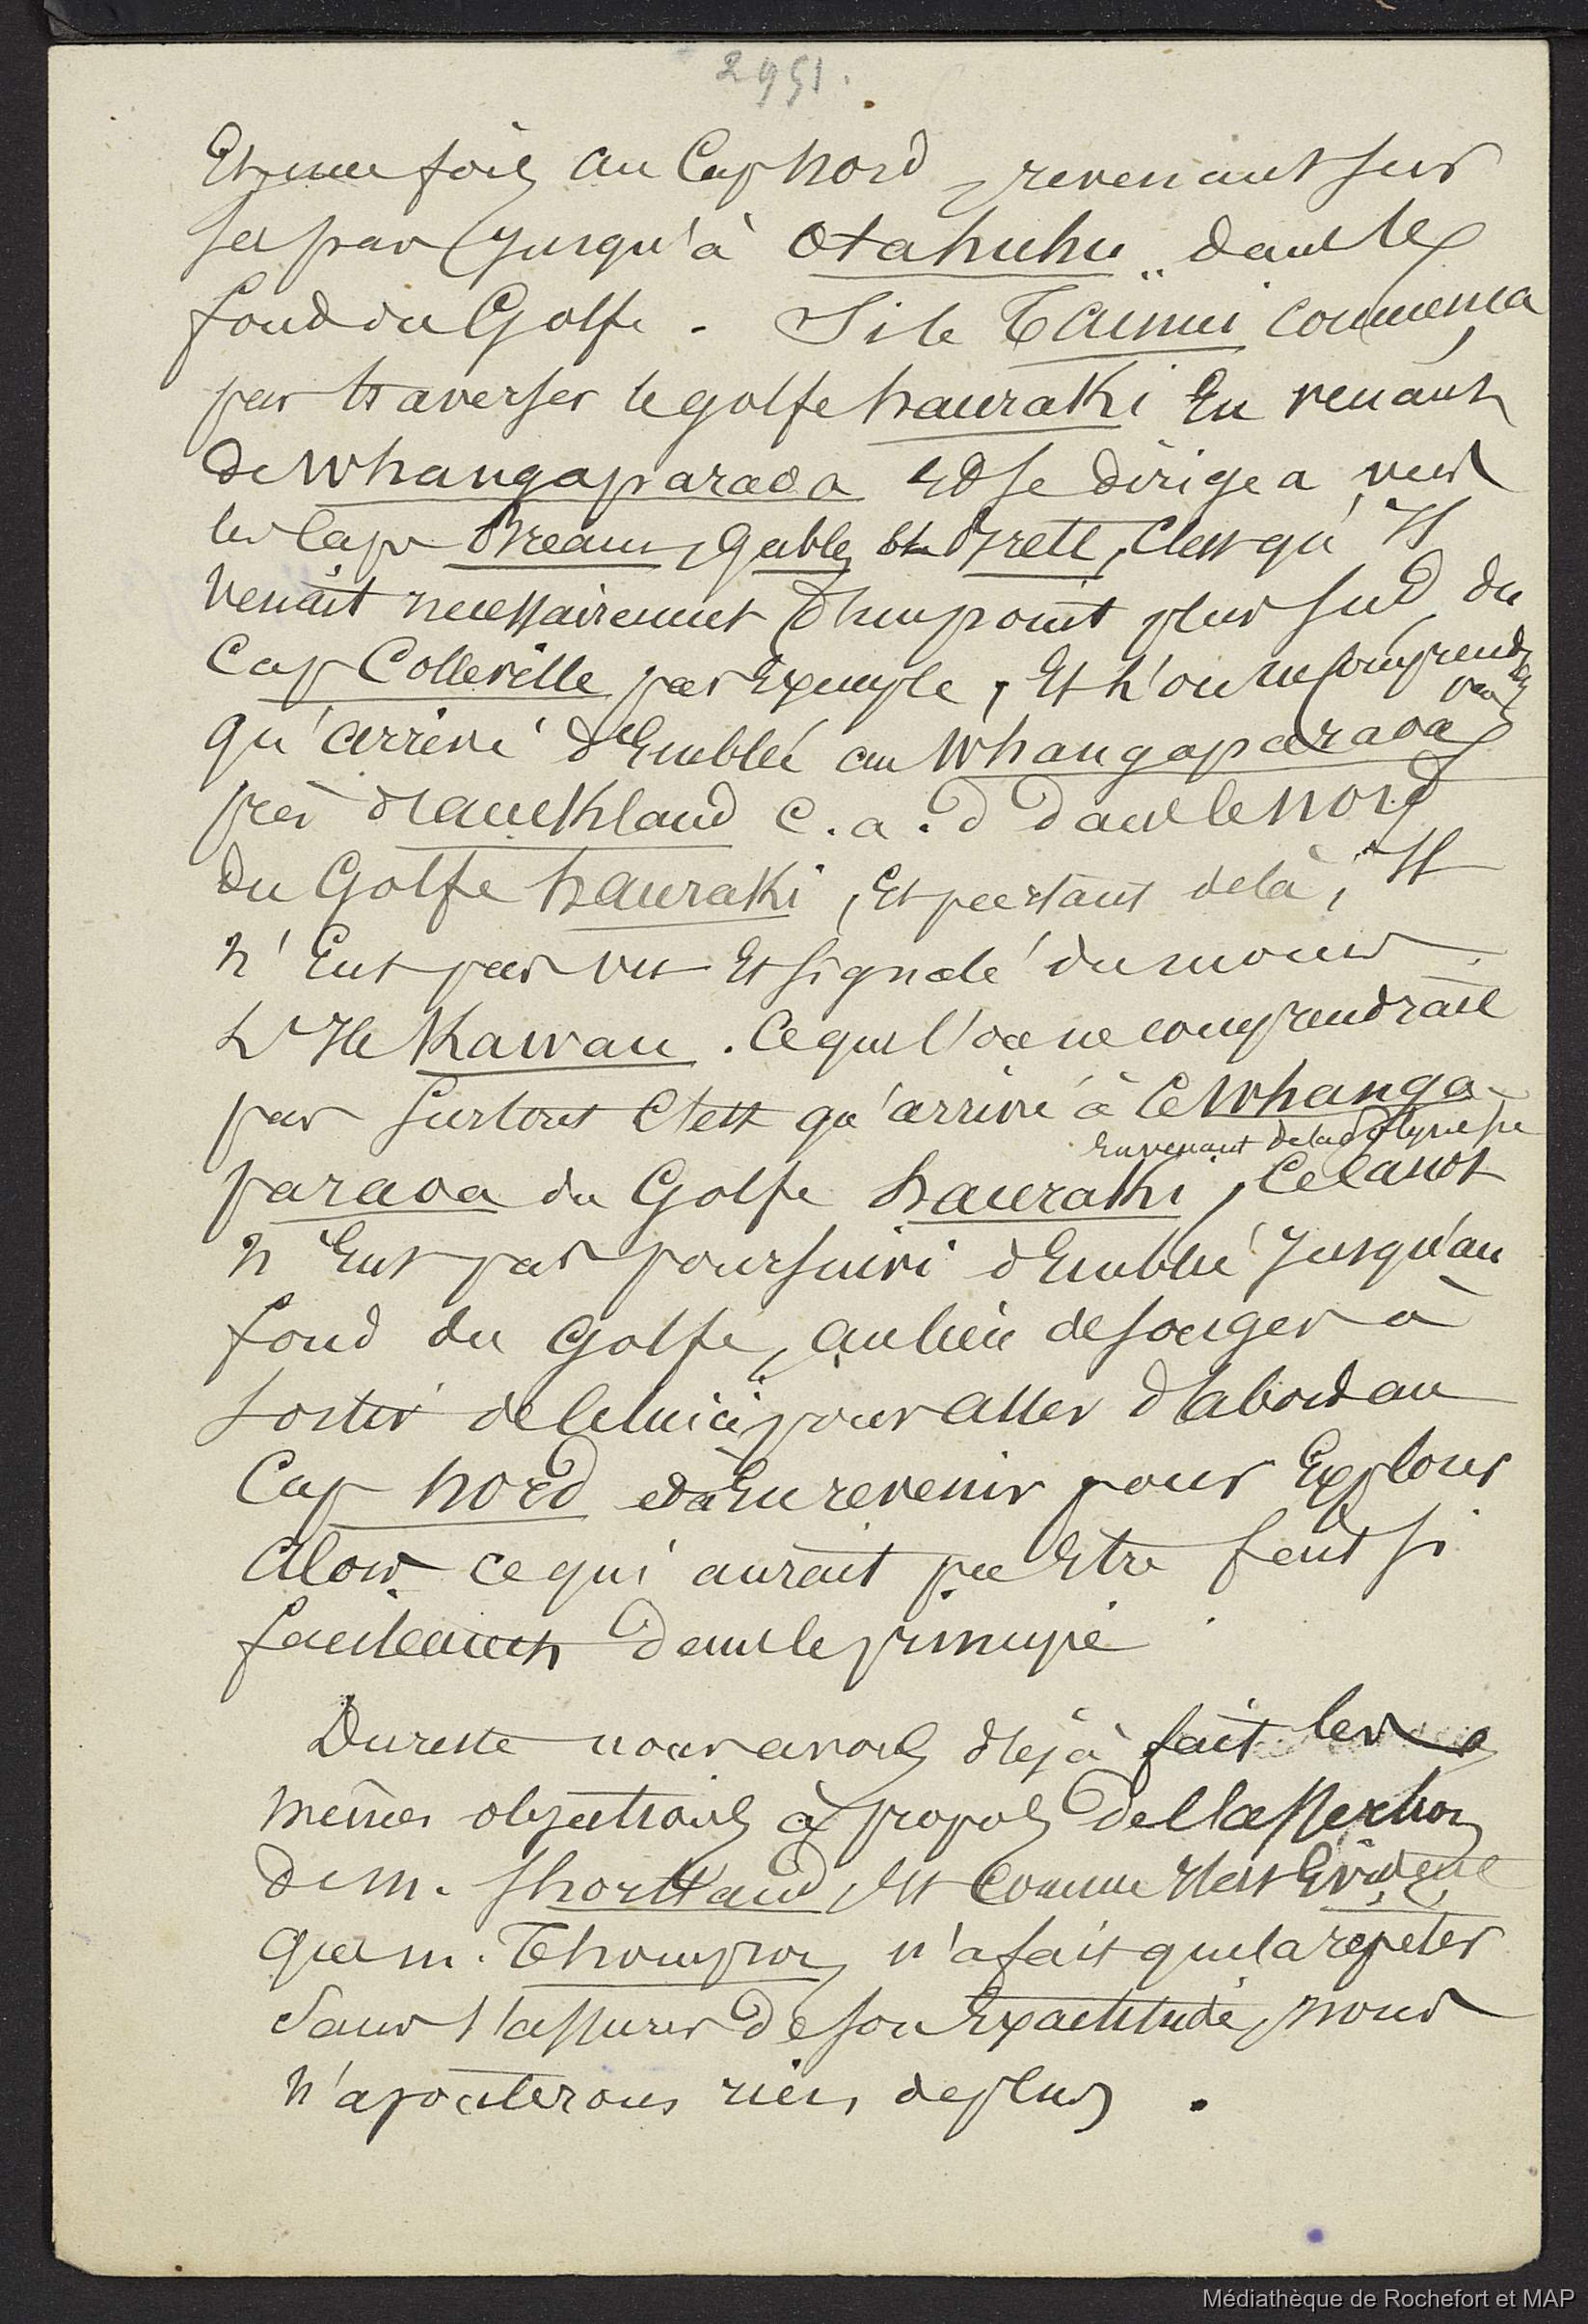 2951.
Et une fois au Cap Nord, revenant sur
ses pas jusqu'à Otahuhu dans le
fond du Golfe. Si le Taïnui commença
par traverser le golfe hauraki En venant
de Whangaparaoa Et se dirigea vers
les Caps Bream, Gable Et Brett, C'est qu'Il
venait necessairement d'un point plus sud, du
Cap Colleville par Exemple, Et l'on ne comprendrait
pas
qu'arrivé d'Emblée au Whangaparaoa
près d'auckland c.a.d dans le nord
du Golfe hauraki, Et partant de là, Il
n'Eut pas vu Et signalé du moins
L'Ile Kawau. Ce que l'on ne comprendrait
pas surtout C'est qu'arrivé à ce Whanga-
En venant de la Polynésie
paraoa du Golfe hauraki, Ce canot
n'Eut pas poursuivi d'Emblée jusqu'au
fond du Golfe, au lieu de songer à
sortir de celui ci pour aller d'abord au
Cap Nord et à En revenir pour Explorer
alors ce qui aurait pu Etre fait si
facilement dans le principe
Du reste nous avons déjà fait les
mêmes objections à propos de l'assertion
de m. Shortland, Et comme Il est Evident
que m. Thompson n'a fait que la repeter
sans s'assurer de son Exactitude, nous
n'ajouterons rien de plus.
Médiathèque de Rochefort et MAP